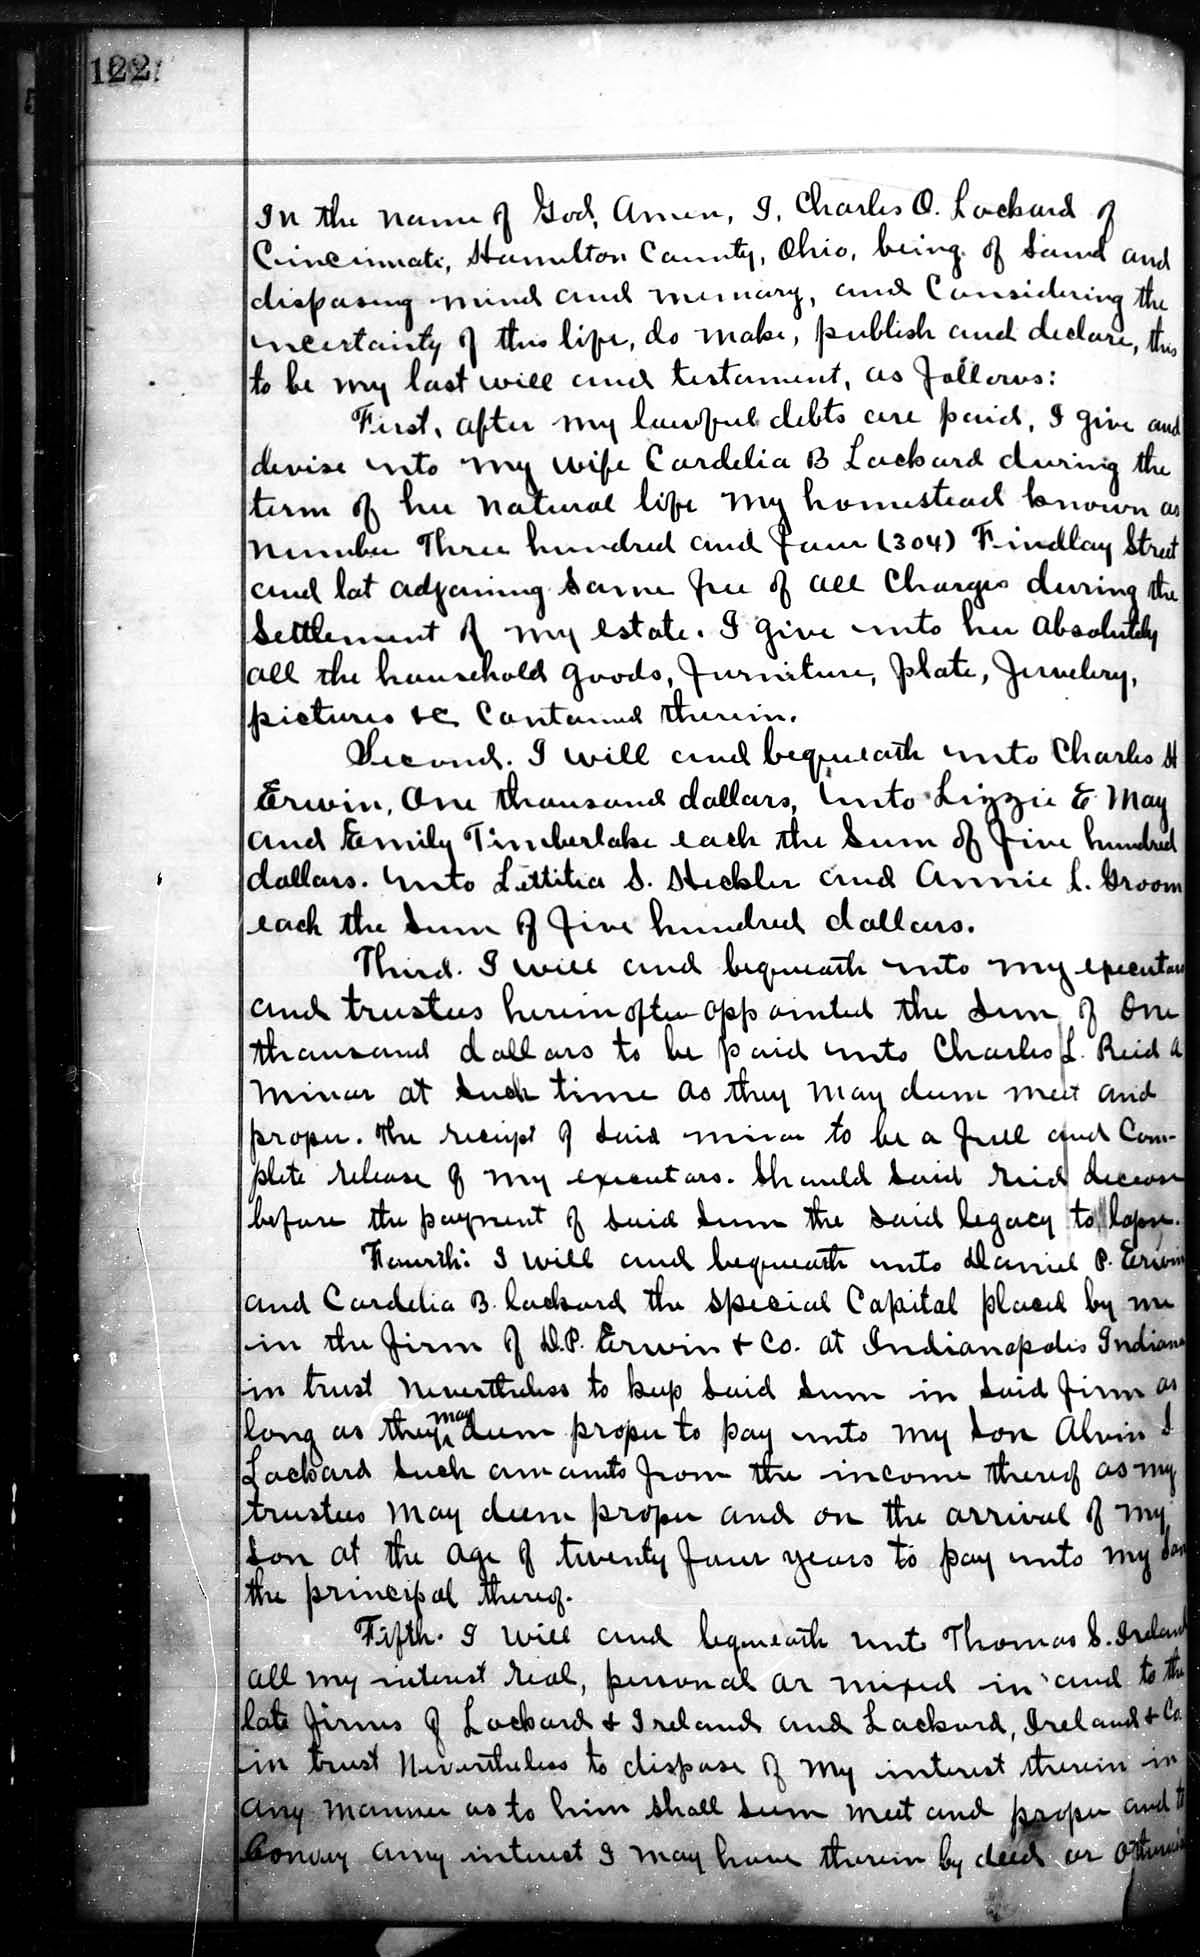 122
In the name of God, Amen, I, Charles O. Lockard of
Cincinnati, Hamilton County, Ohio, being of sound and
disposing mind and memory, and Considering the
uncertainty of this life, do make, publish and declare, this
to be my last will and testament, as follows:
First, after my lawful debts are paid, I give and
devise unto my wife Cordelia B Lockard during the
term of her natural life my homestead known as
number Three hundred and four (304) Findlay Street
and lot adjoining same free of all Charges during the
settlement of my estate. I give unto her absolutely
all the household goods, furniture, plate, jewelery,
pictures &c Contained therein.
Second. I will and bequeath unto Charles H
Erwin, One thousand dollars, unto Lizzie E May
and Emily Timberlake each the sum of five hundred
dollars. unto Lettitia S. Steckler and Annie L. Groom
each the sum of five hundred dollars.
Third. I will and bequeath unto my executors
and trustees hereinafter appointed the sum of One
thousand dollars to be paid unto Charles L. Reid a
minor at such time as they may deem meet and
proper. The receipt of said minor to be a full and Com-
plete release of my executors. Should said Reid decease
before the payment of said sum the said legacy to lapse.
Fourth: I will and bequeath unto Daniel P. Erwin
and Cordelia B. Lockard the special Capital placed by me
in the firm of D.P. Erwin & Co. at Indianapolis Indiana
in trust nevertheless to keep said sum in said firm as
long as they may deem proper to pay unto my son Alvin S
Lockard such amounts from the income thereof as my
trustees may deem proper and on the arrival of my
son at the age of twenty four years to pay unto my son
the principal thereof.
Fifth. I will and bequeath unto Thomas S. Ireland
all my interest real, personal or mixed in and to the
late firms of Lockard & Ireland and Lockard, Ireland & Co.
in trust nevertheless to dispose of my interest therein in
any manner as to him shall seem meet and proper and to
Convey any interest I may have therein by deed or otherwise